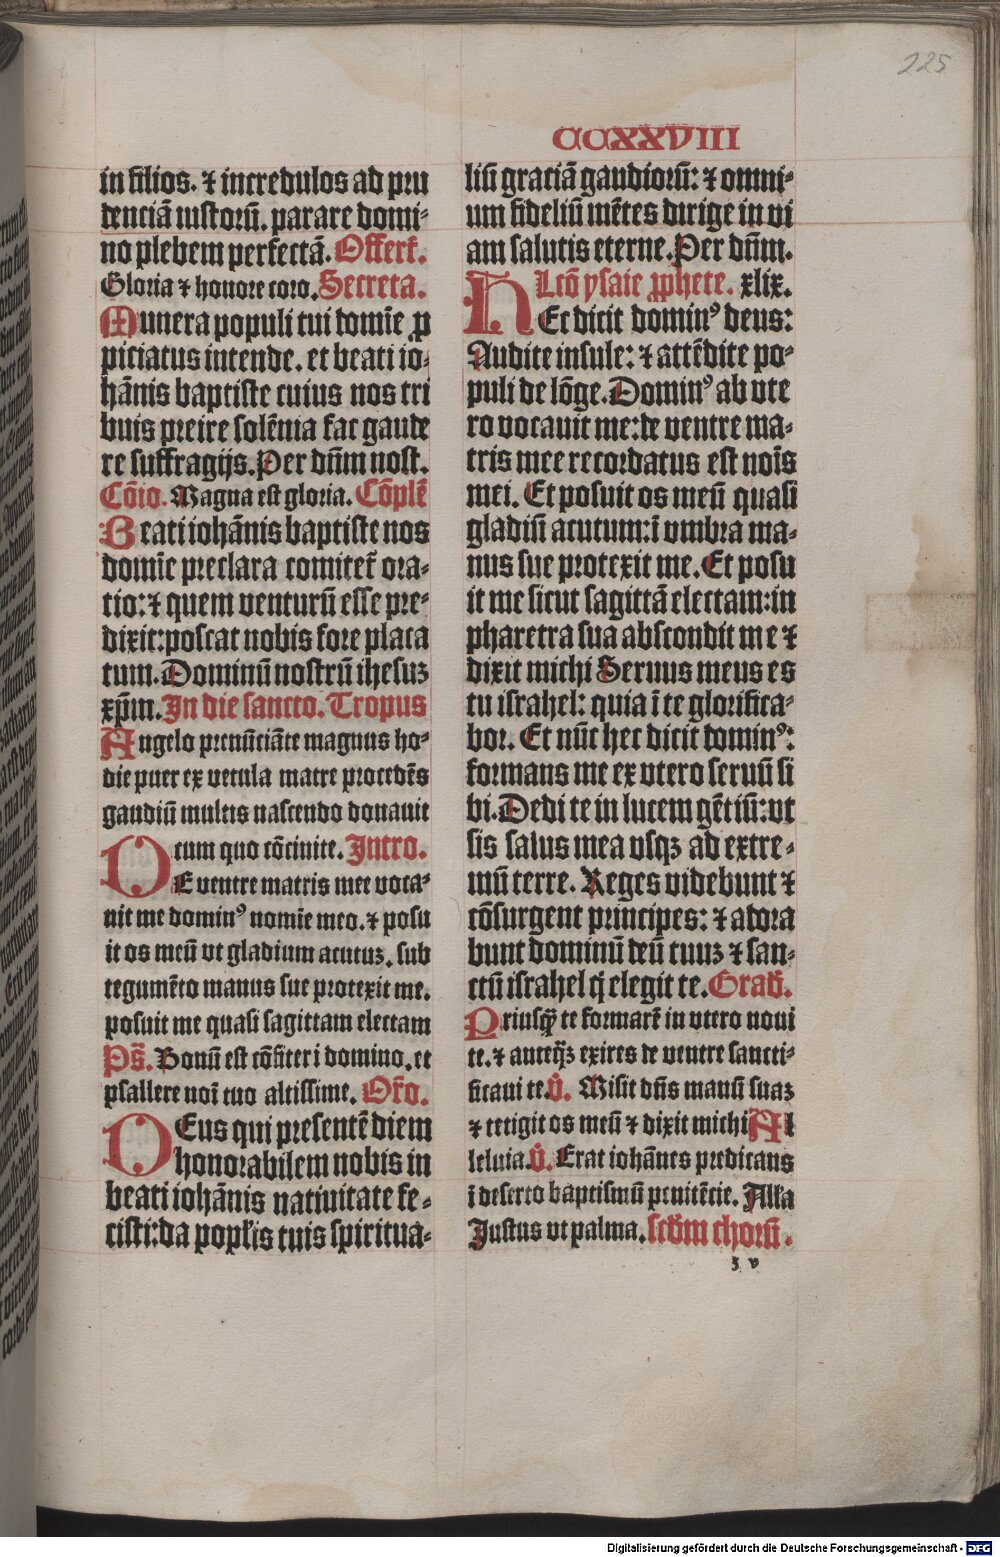 225
CCXXVIII
in filios. ⁊ incredulos ad pru
denciā iustoꝝ. parare domi⸗
no plebem perfectā. Offert̄.
Gloria ⁊ honore coro. Secreta.
Munera populi tui domīe ꝓ
piciatus intende. et beati io⸗
hānis baptiste cuius nos tri
buis preire solēnia fac gaude
re suffragijs. Per dn̄m nost.
Cōio. Magna est gloria. Cōplē
Beati iohānis baptiste nos
domīe preclara comitet̄ ora⸗
tio: ⁊ quem venturū esse pre⸗
dixit: poscat nobis fore placa
tum. Dominū nostrū ihesuz
xp̄m. In die sancto. Tropus
Angelo prenūciāte magnus ho⸗
die puer ex vetula matre procedēs
gaudiū multis nascendo donauit
cum quo cōcinite. Intro.
DE ventre matris mee voca⸗
uit me dominꝰ nomīe meo. ⁊ posu
it os meū vt gladium acutuz. sub
tegumēto manus sue protexit me.
posuit me quasi sagittam electam
Ps̄. Bonū est cōfiteri domino. et
psallere noī tuo altissime. Or̄o.
DEus qui presentē diem
honorabilem nobis in
beati iohānis natiuitate fe⸗
cisti: da popl̄is tuis spiritua⸗
liū graciā gaudioꝝ: ⁊ omni⸗
um fideliū mētes dirige in vi
am salutis eterne. Per dn̄m.
Lcō ysaie ꝓphete. xlix.
HEc dicit dominꝰ deus:
Audite insule: ⁊ attēdite po⸗
puli de lōge. Dominꝰ ab vte
ro vocauit me: de ventre ma⸗
tris mee recordatus est noīs
mei. Et posuit os meū quasi
gladiū acutum: ī vmbra ma⸗
nus sue protexit me. Et posu
it me sicut sagittā electam: in
pharetra sua abscondit me ⁊
dixit michi Seruus meus es
tu israhel: quia ī te glorifica⸗
bor. Et nūc hec dicit dominꝰ:
formans me ex vtero seruū si
bi. Dedi te in lucem gētiū: vt
sis salus mea vsqꝫ ad extre⸗
mū terre. Reges videbunt ⁊
cōsurgent principes: ⁊ adora
bunt dominū deū tuuz ⁊ san⸗
ctū israhel q̄ elegit te. Grad̄.
Priusq̄ te formarē in vtero noui
te. ⁊ anteq̄ꝫ exires de ventre sancti⸗
ficaui te. V̄. Misit dn̄s manū suaz
⁊ tetigit os meū ⁊ dixit michi Al
leluia. V̄. Erat iohānes predicans
ī deserto baptismū penitēcie. Alla
Justus vt palma. scd̄m choꝝ.
ʒ v
Digitalisierung gefördert durch die Deutsche Forschungsgemeinschaft - DFG